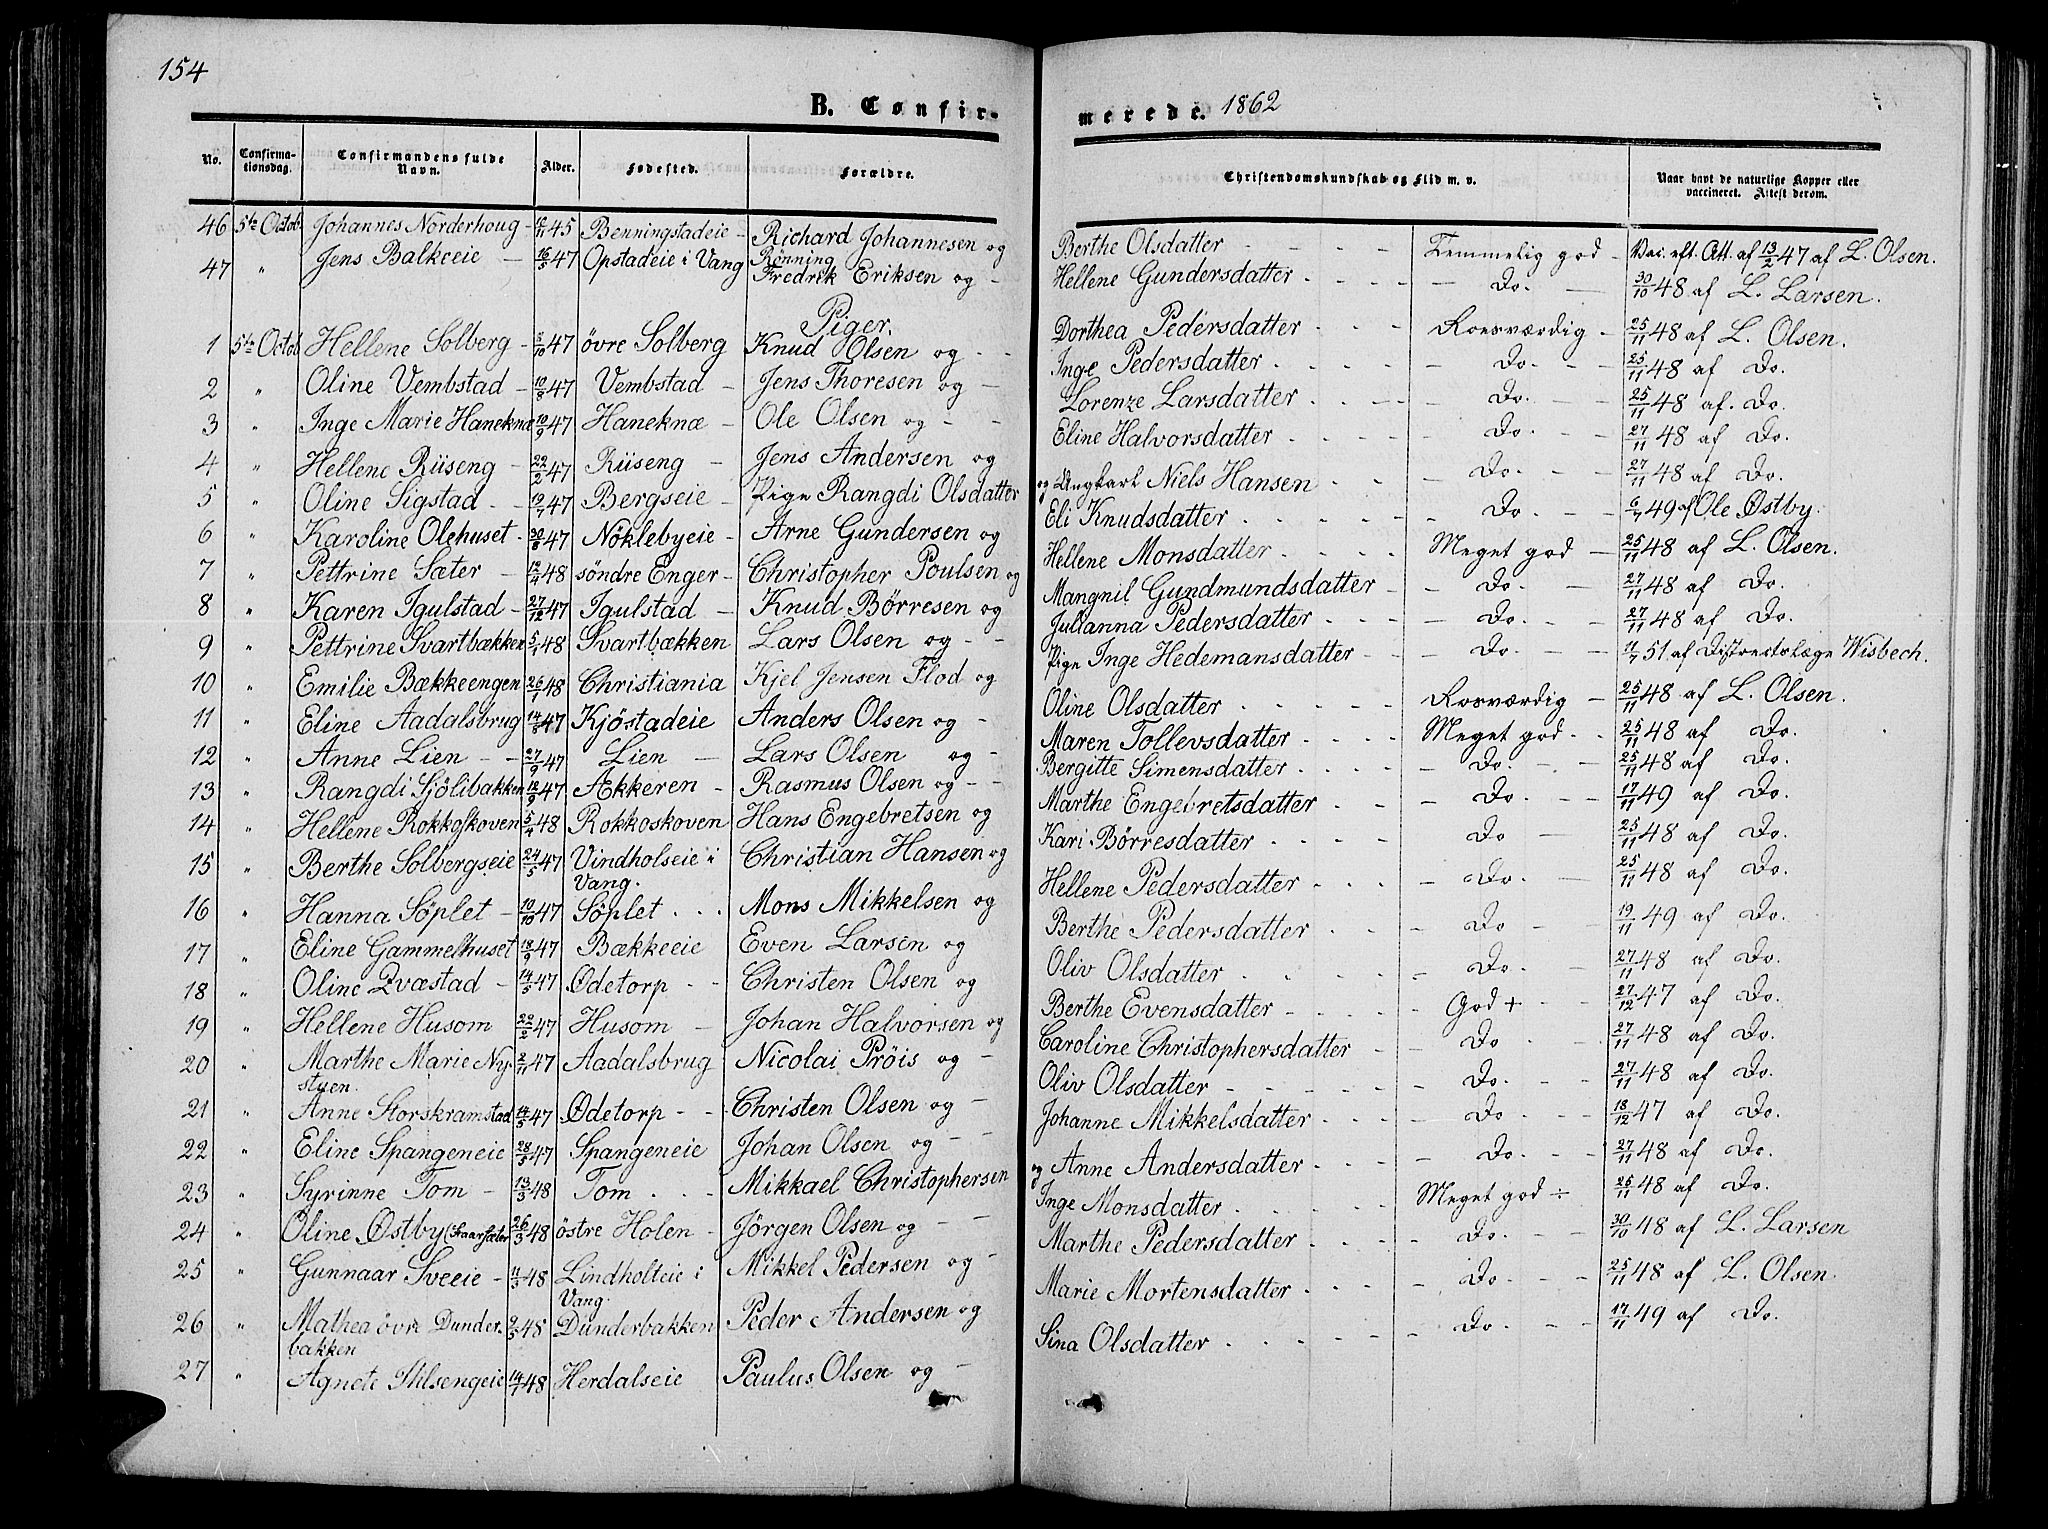 154
B. Confirmerede. 1862
No. Confirmationsdag. Confirmandens fulde Navn. Alder. Fødested. Forældre. Christendomskundskab og Flid m. v. Naar havt de naturlige Kopper eller vaccineret. Attest derom.
46 5te Octob. Johannes Norderhoug - 45 Benningstadeie - Richard Johannesen og Berthe Olsdatter - Temmelig god - Vac. eft. Att. af 13/2 47 af L. Olsen.
47 " Jens Balkeeie - 16/5 47 Opstadeie i Vang Rönning Fredrik Eriksen og - Hellene Gundersdatter - Do. - 30/10 48 af L. Larsen.
Piger.
1 5te Octob Hellene Solberg - 5/10 47 övre Solberg Knud Olsen og - Dorthea Pedersdatter - Roesværdig - 25/11 48 af L. Olsen.
2 " Oline Vembstad - 10/8 47 Vembstad - Jens Thoresen og - Inge Pedersdatter - Do. - 25/11 48 af Do.
3 " Inge Marie Haneknæ 10/9 47 Haneknæ - Ole Olsen og - Lorenze Larsdatter - Do. - 25/11 48 af. Do.
4 " Hellene Riiseng - 22/2 47 Riiseng - Jens Andersen og Eline Halvorsdatter - Do. - 27/11 48 af Do.
5 " Oline Sigstad - 47 Bergseie - Pige Rangdi Olsdatter og Ungkarl Niels Hansen - Do. - 27/11 48 af Do.
6 " Karoline Olehuset - 30/8 47 Nöklebyeie - Arne Gundersen og Eli Knudsdatter - Do. - 6/7 49 af Ole Østby.
7 " Pettrine Sæter - 12/4 48 söndre Enger - Christopher Poulsen og Hellene Monsdatter - Meget god - 25/11 48 af L. Olsen.
8 " Karen Igulstad - 27/12 47 Igulstad - Knud Börresen og Mangnil Gundmundsdatter - Do. - 27/11 48 af Do.
9 " Pettrine Svartbækken 5/1 48 Svartbækken Lars Olsen og - Julianna Pedersdatter - Do. - 27/11 48 af Do.
10 " Emilie Bækkeengen 26/1 48 Christiania Kjel Jensen Flod og Pige Inge Hedemansdatter - Do - 51 af Districtslæge Wisbech.
11 " Eline Aadalsbrug 14/8 47 Kjöstadeie Anders Olsen og - Oline Olsdatter - Rosværdig - 25/11 48 af L. Olsen.
12 " Anne Lien - 27/9 47 Lien - Lars Olsen og - Maren Tollevsdatter - Meget god - 25/11 48 af Do.
13 " Rangdi Sjölibakken 12/9 47 Ækkeren - Rasmus Olsen og - Bergitte Simensdatter - Do. - 25/11 48 af Do.
14 " Hellene Rokkoskoven 5/4 48 Rokkoskoven Hans Engebretsen og Marthe Engebretsdatter - Do. - 17/11 49 af Do.
15 " Berthe Solbergseie 24/5 47 Vindholseie i Vang. Christian Hansen og Kari Börresdatter - Do - 25/11 48 af Do.
16 " Hanna Söplet - 10/10 47 Söplet - Mons Mikkelsen og Hellene Pedersdatter - Do. - 25/11 48 af Do.
17 " Eline Gammelhuset 18/9 47 Bækkeeie Even Larsen og Berthe Pedersdatter - Do - 19/11 49 af Do.
18 " Oline Qvæstad - 14/5 47 Ødetorp - Christen Olsen og Oliv Olsdatter - Do. - 27/11 48 af Do.
19 " Hellene Husom 22/2 47 Husom - Johan Halvorsen og Berthe Evensdatter - God + - 27/12 47 af Do.
20 " Marthe Marie Nystuen. 2/11 47 Aadalsbrug Nicolai Pröis og - Caroline Christophersdatter - Do. - 27/11 48 af Do.
21 " Anne Storskramstad 14/5 47 Ødetorp - Christen Olsen og - Oliv Olsdatter - Do. - 27/11 48 af Do.
22 " Eline Spangeneie 28/5 47 Spangeneie Johan Olsen og - Johanne Mikkelsdatter - Do - 18/12 47 af Do.
23 " Syrinne Tom - 13/3 48 Tom - Mikkael Christophersen og Anne Andersdatter - Do. - 27/11 48 af Do.
24 " Oline Østby (Skaarsæter 26/3 48 östre Holen - Jörgen Olsen og - Inge Monsdatter - Meget god ÷ 25/11 48 af Do.
25 " Gunnaar Sveeie - 11/3 48 Lindholteie i Vang. Mikkel Pedersen og - Marthe Pedersdatter - Do. - 30/10 48 af L. Larsen
26 " Mathea övre Dunderbakken 2/5 48 Dunderbakken Peder Andersen og Marie Mortensdatter - Do - 25/11 48 af L. Olsen.
27 " Agnete Stilsengeie 14/1 48 Herdalseie Paulus Olsen og - Sina Olsdatter - Do. - 17/11 49 af Do.